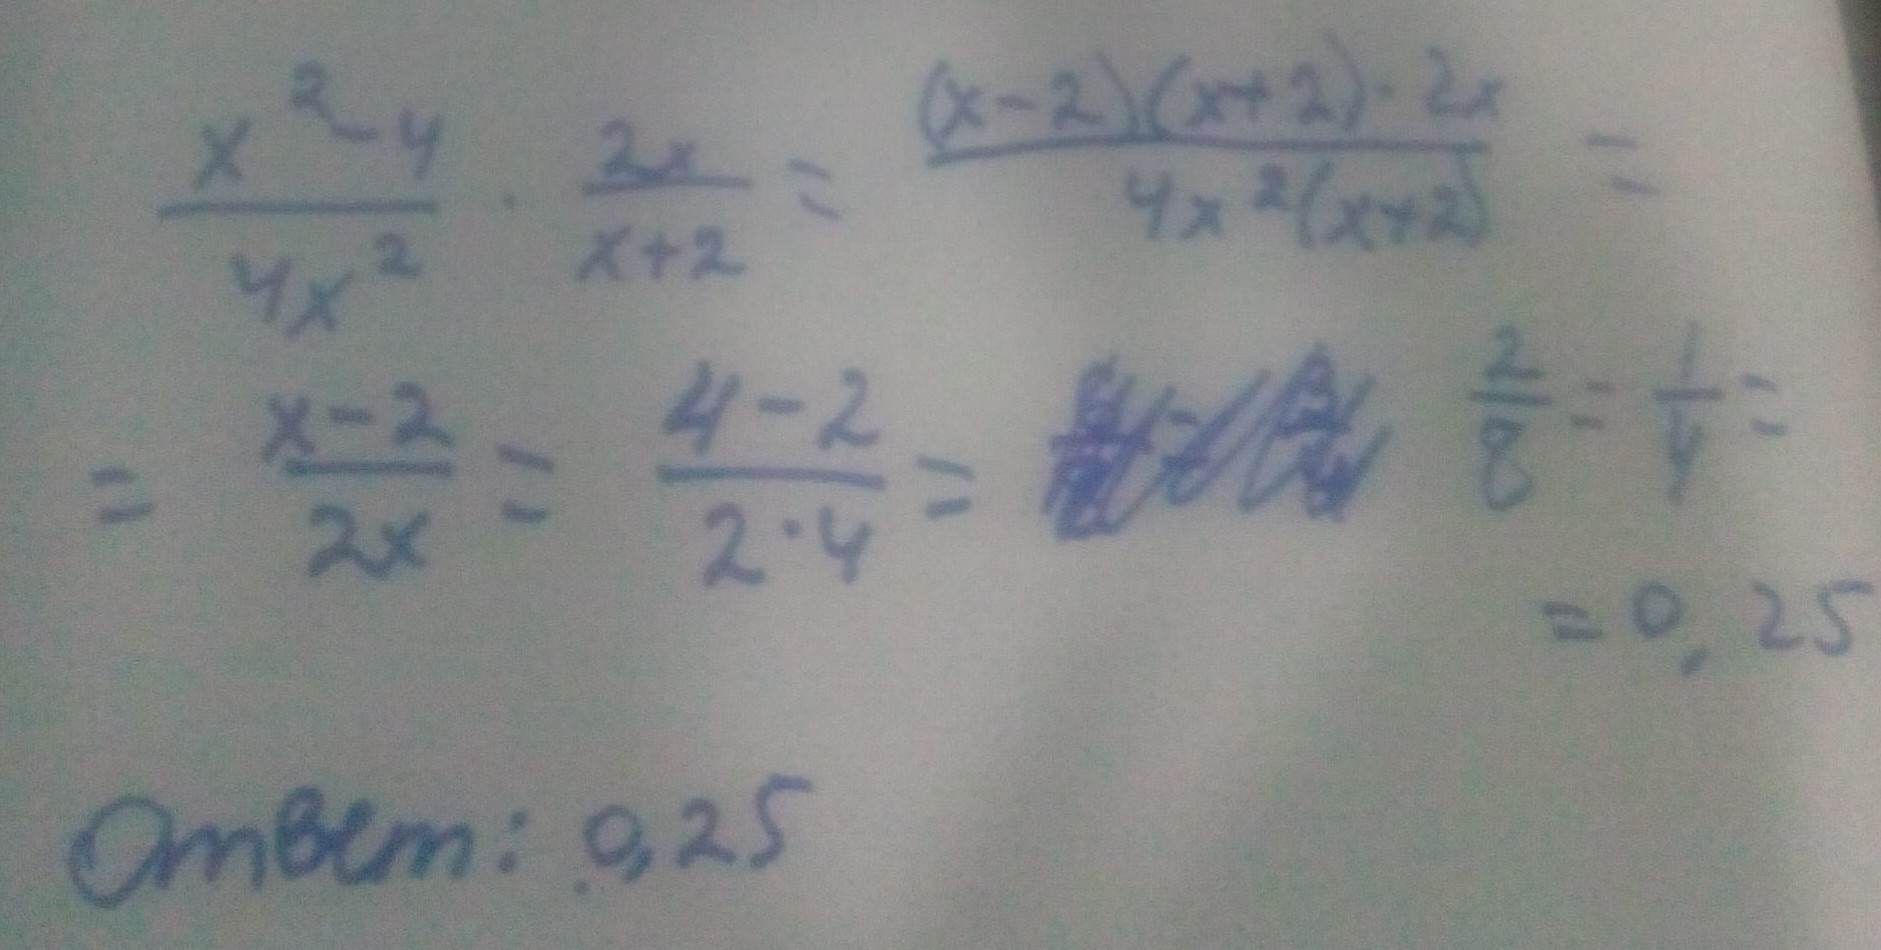 (x²-4)/(4x²) · (2x)/(x+2) = ((x-2)(x+2)·2x)/(4x²(x+2)) =
= (x-2)/(2x) = (4-2)/(2·4) = 2/8 = 1/4 =
= 0,25
Ответ: 0,25